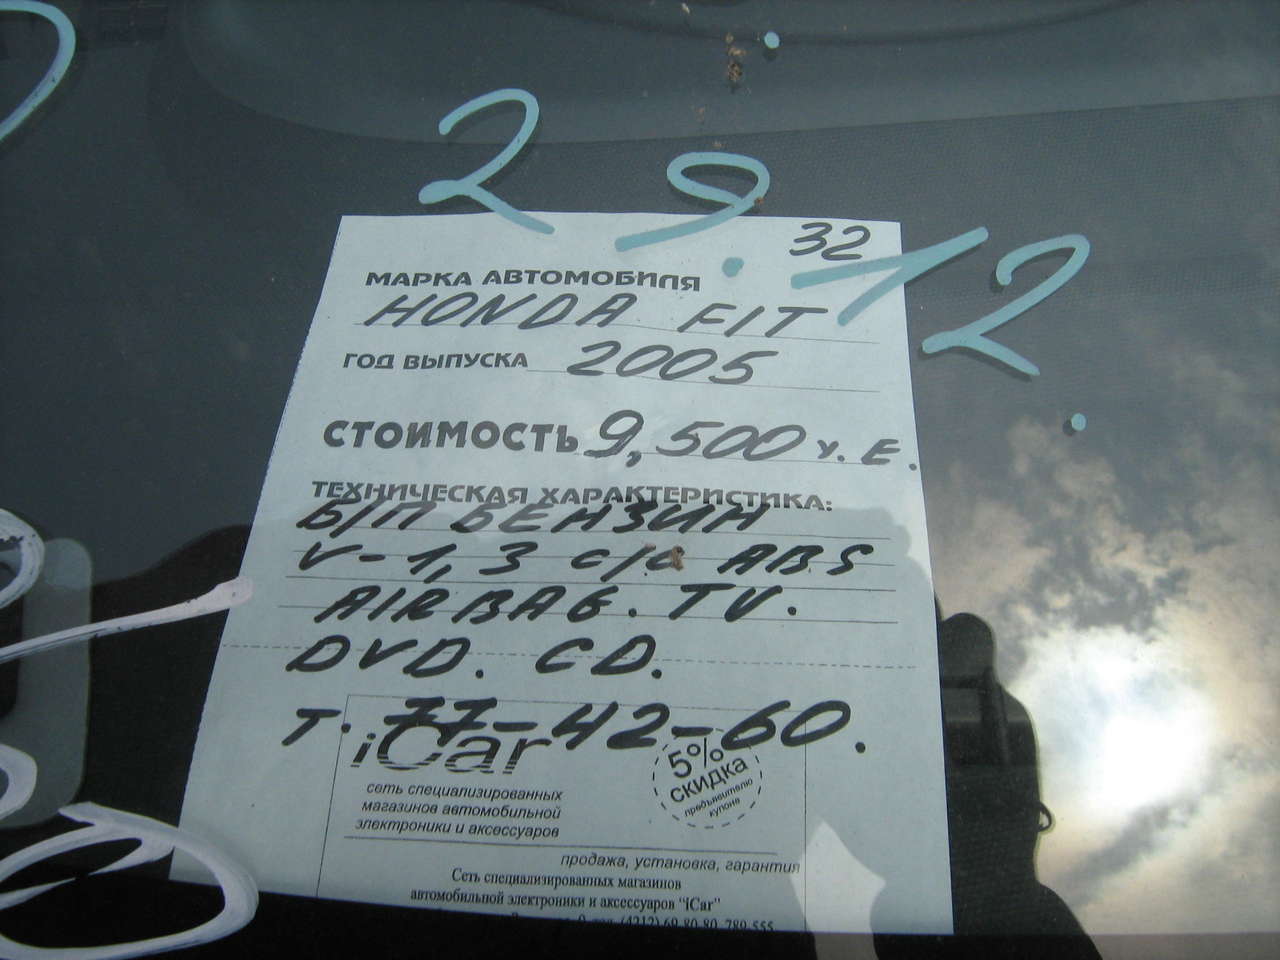 29.12.
32
МАРКА АВТОМОБИЛЯ
HONDA FIT
ГОД ВЫПУСКА 2005
СТОИМОСТЬ 9,500 у.е.
ТЕХНИЧЕСКАЯ ХАРАКТЕРИСТИКА:
Б/П БЕНЗИН
V-1,3 с/с ABS
AIRBAG. TV.
DVD. CD.
т. 77-42-60.
iCar
5%
СКИДКА
предъявителю
купона
сеть специализированных
магазинов автомобильной
электроники и аксессуаров
продажа, установка, гарантия
Сеть специализированных магазинов
автомобильной электроники и аксессуаров "iCar"
(4212) 69 80 80, 789 555